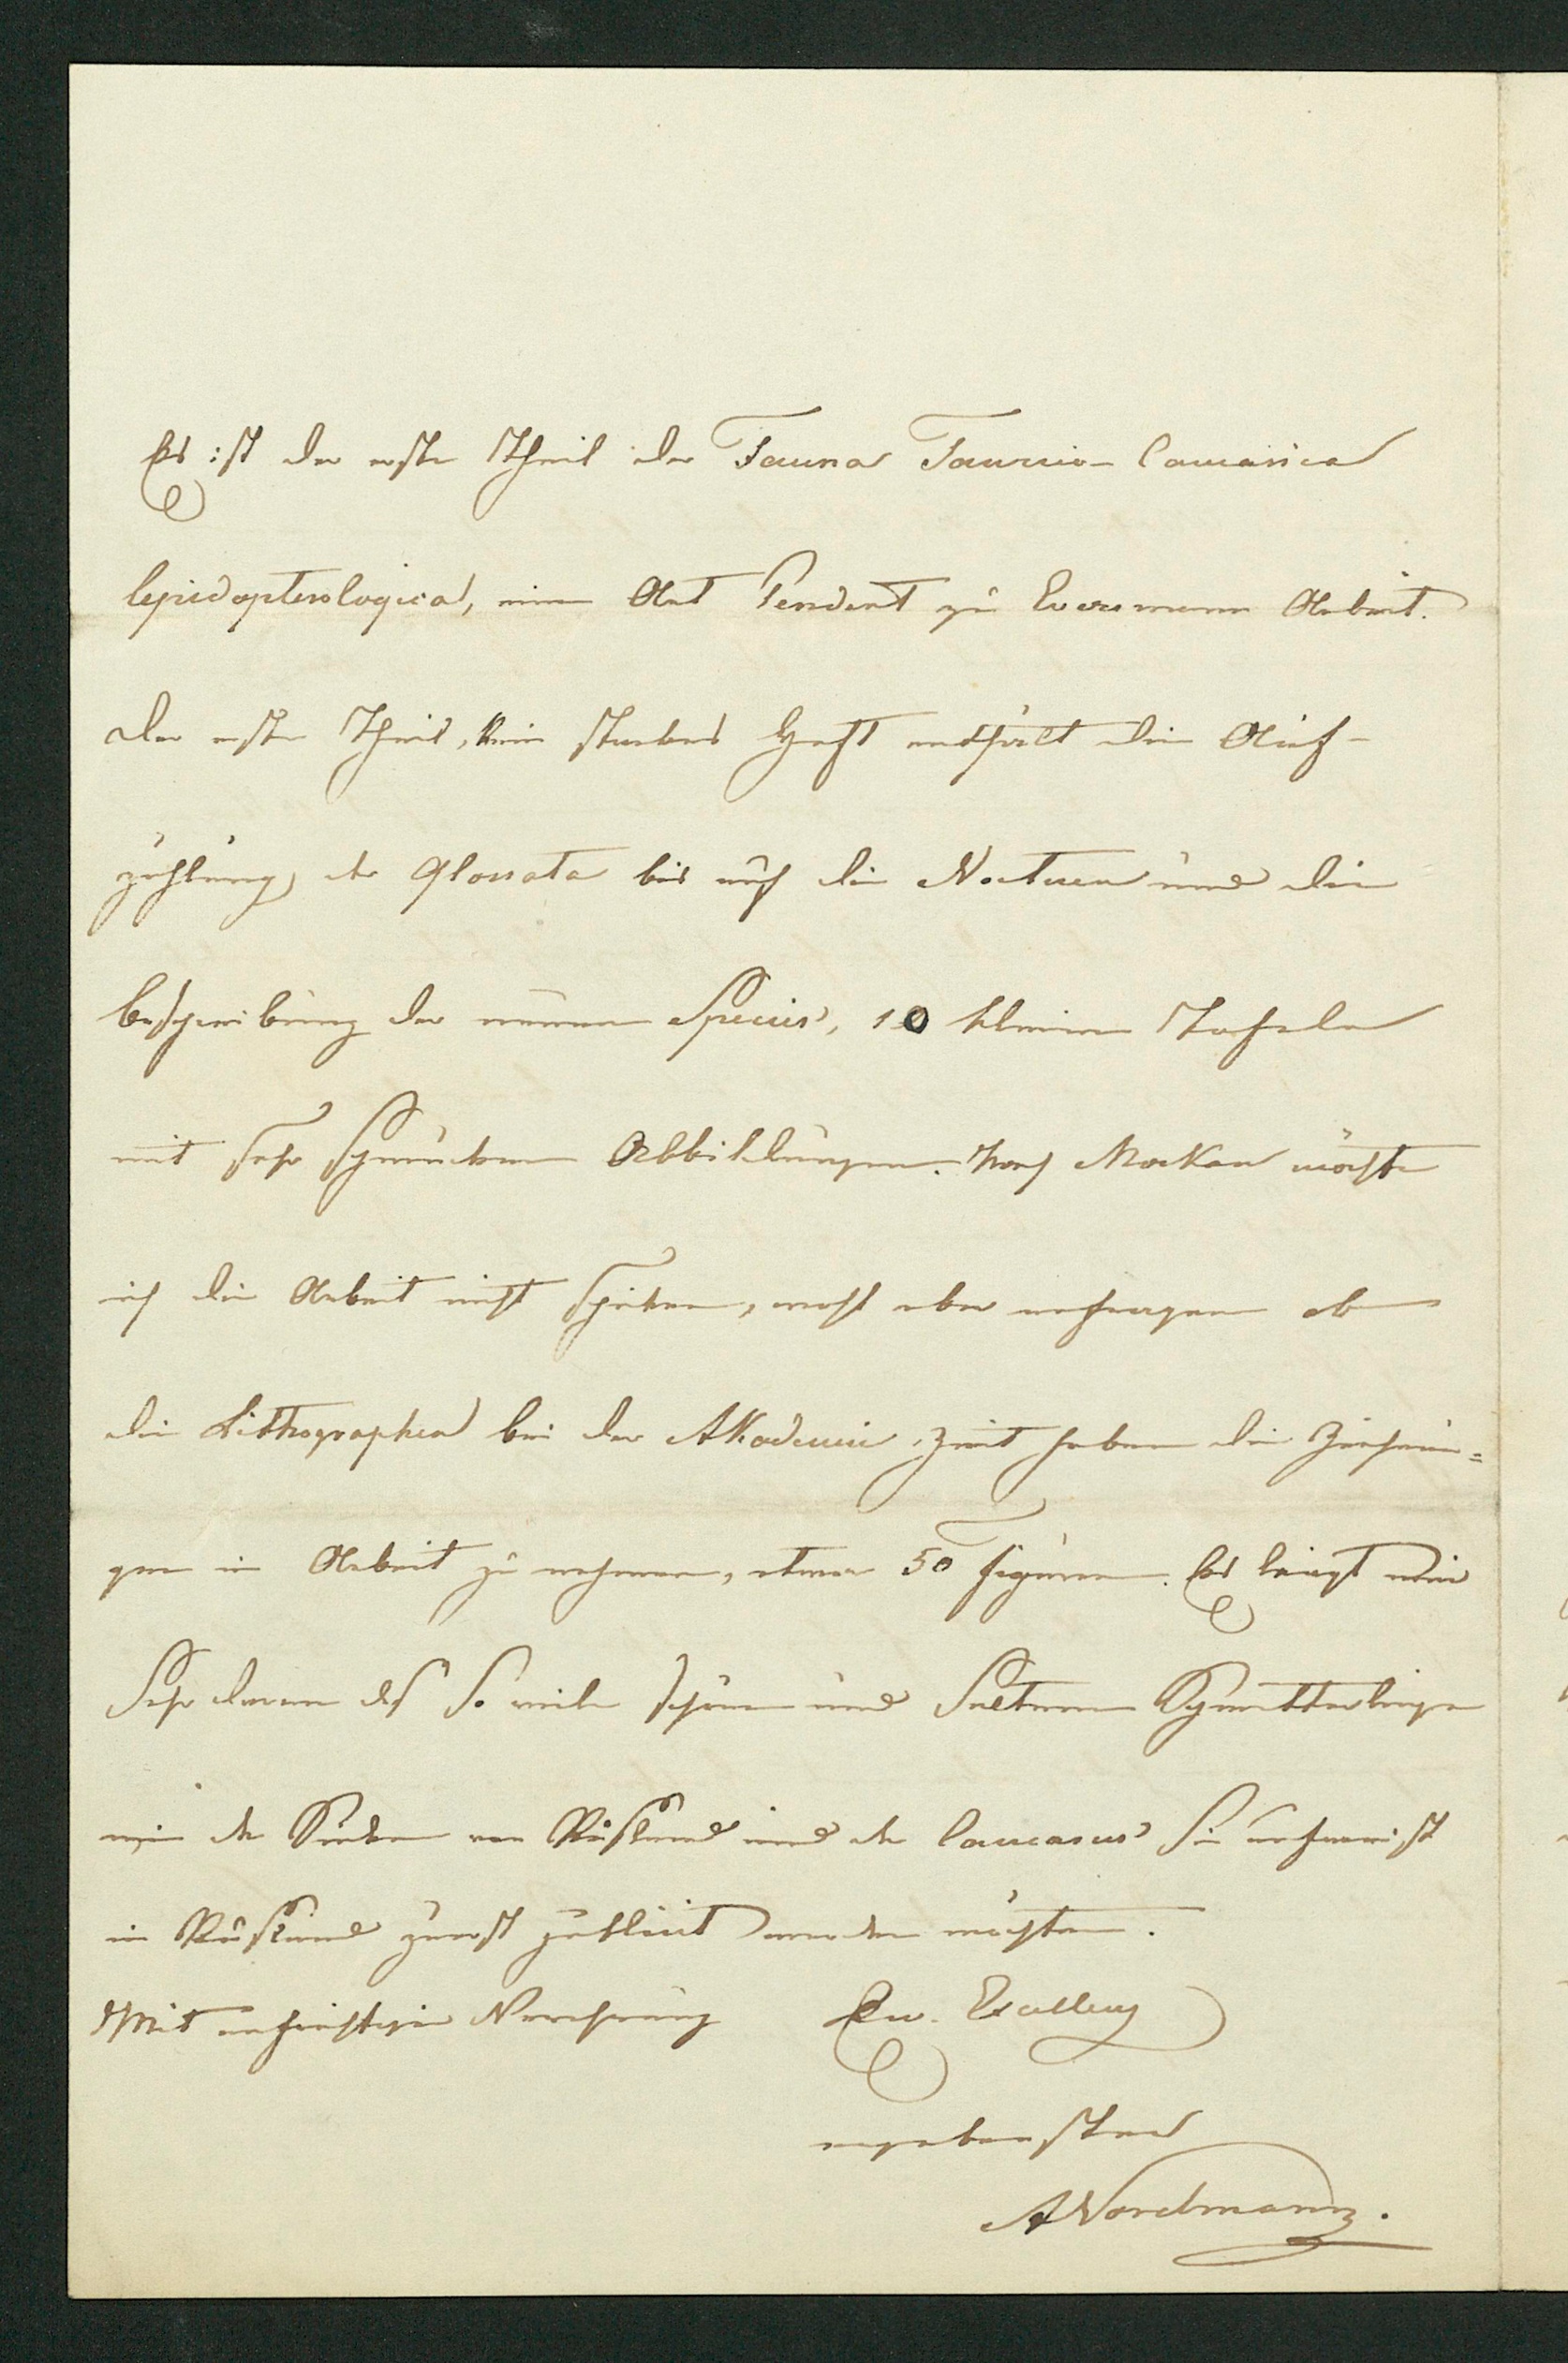 Es ist der erste Theil der Fauna Taurico-Caucasica
lepidopterologica, eine Art Pendent zu Eversmanns Arbeit.
Der erste Theil, kein starkes Heft enthält die Auf-
zählung der Glossata bis auf die Noctuen und die
Beschreibung der neuen Species, 10 kleine Tafeln
mit sehr schmucken Abbildungen. Nach Moskau möchte
ich die Arbeit nicht schicken, wohl aber anfragen ob
die Lithographen bei der Akademie Zeit haben die Zeichnun=
gen in Arbeit zu nehmen, etwa 50 Figuren. Es liegt mir
sehr daran daß so viele schöne und seltene Schmetterlinge
wie der Süden von Rußland und der Caucasus sie aufweist
in Rußland zuerst publicirt werden möchten.
Mit aufrichtiger Verehrung Ew. Excellenz
ergebenster
A Nordmann.